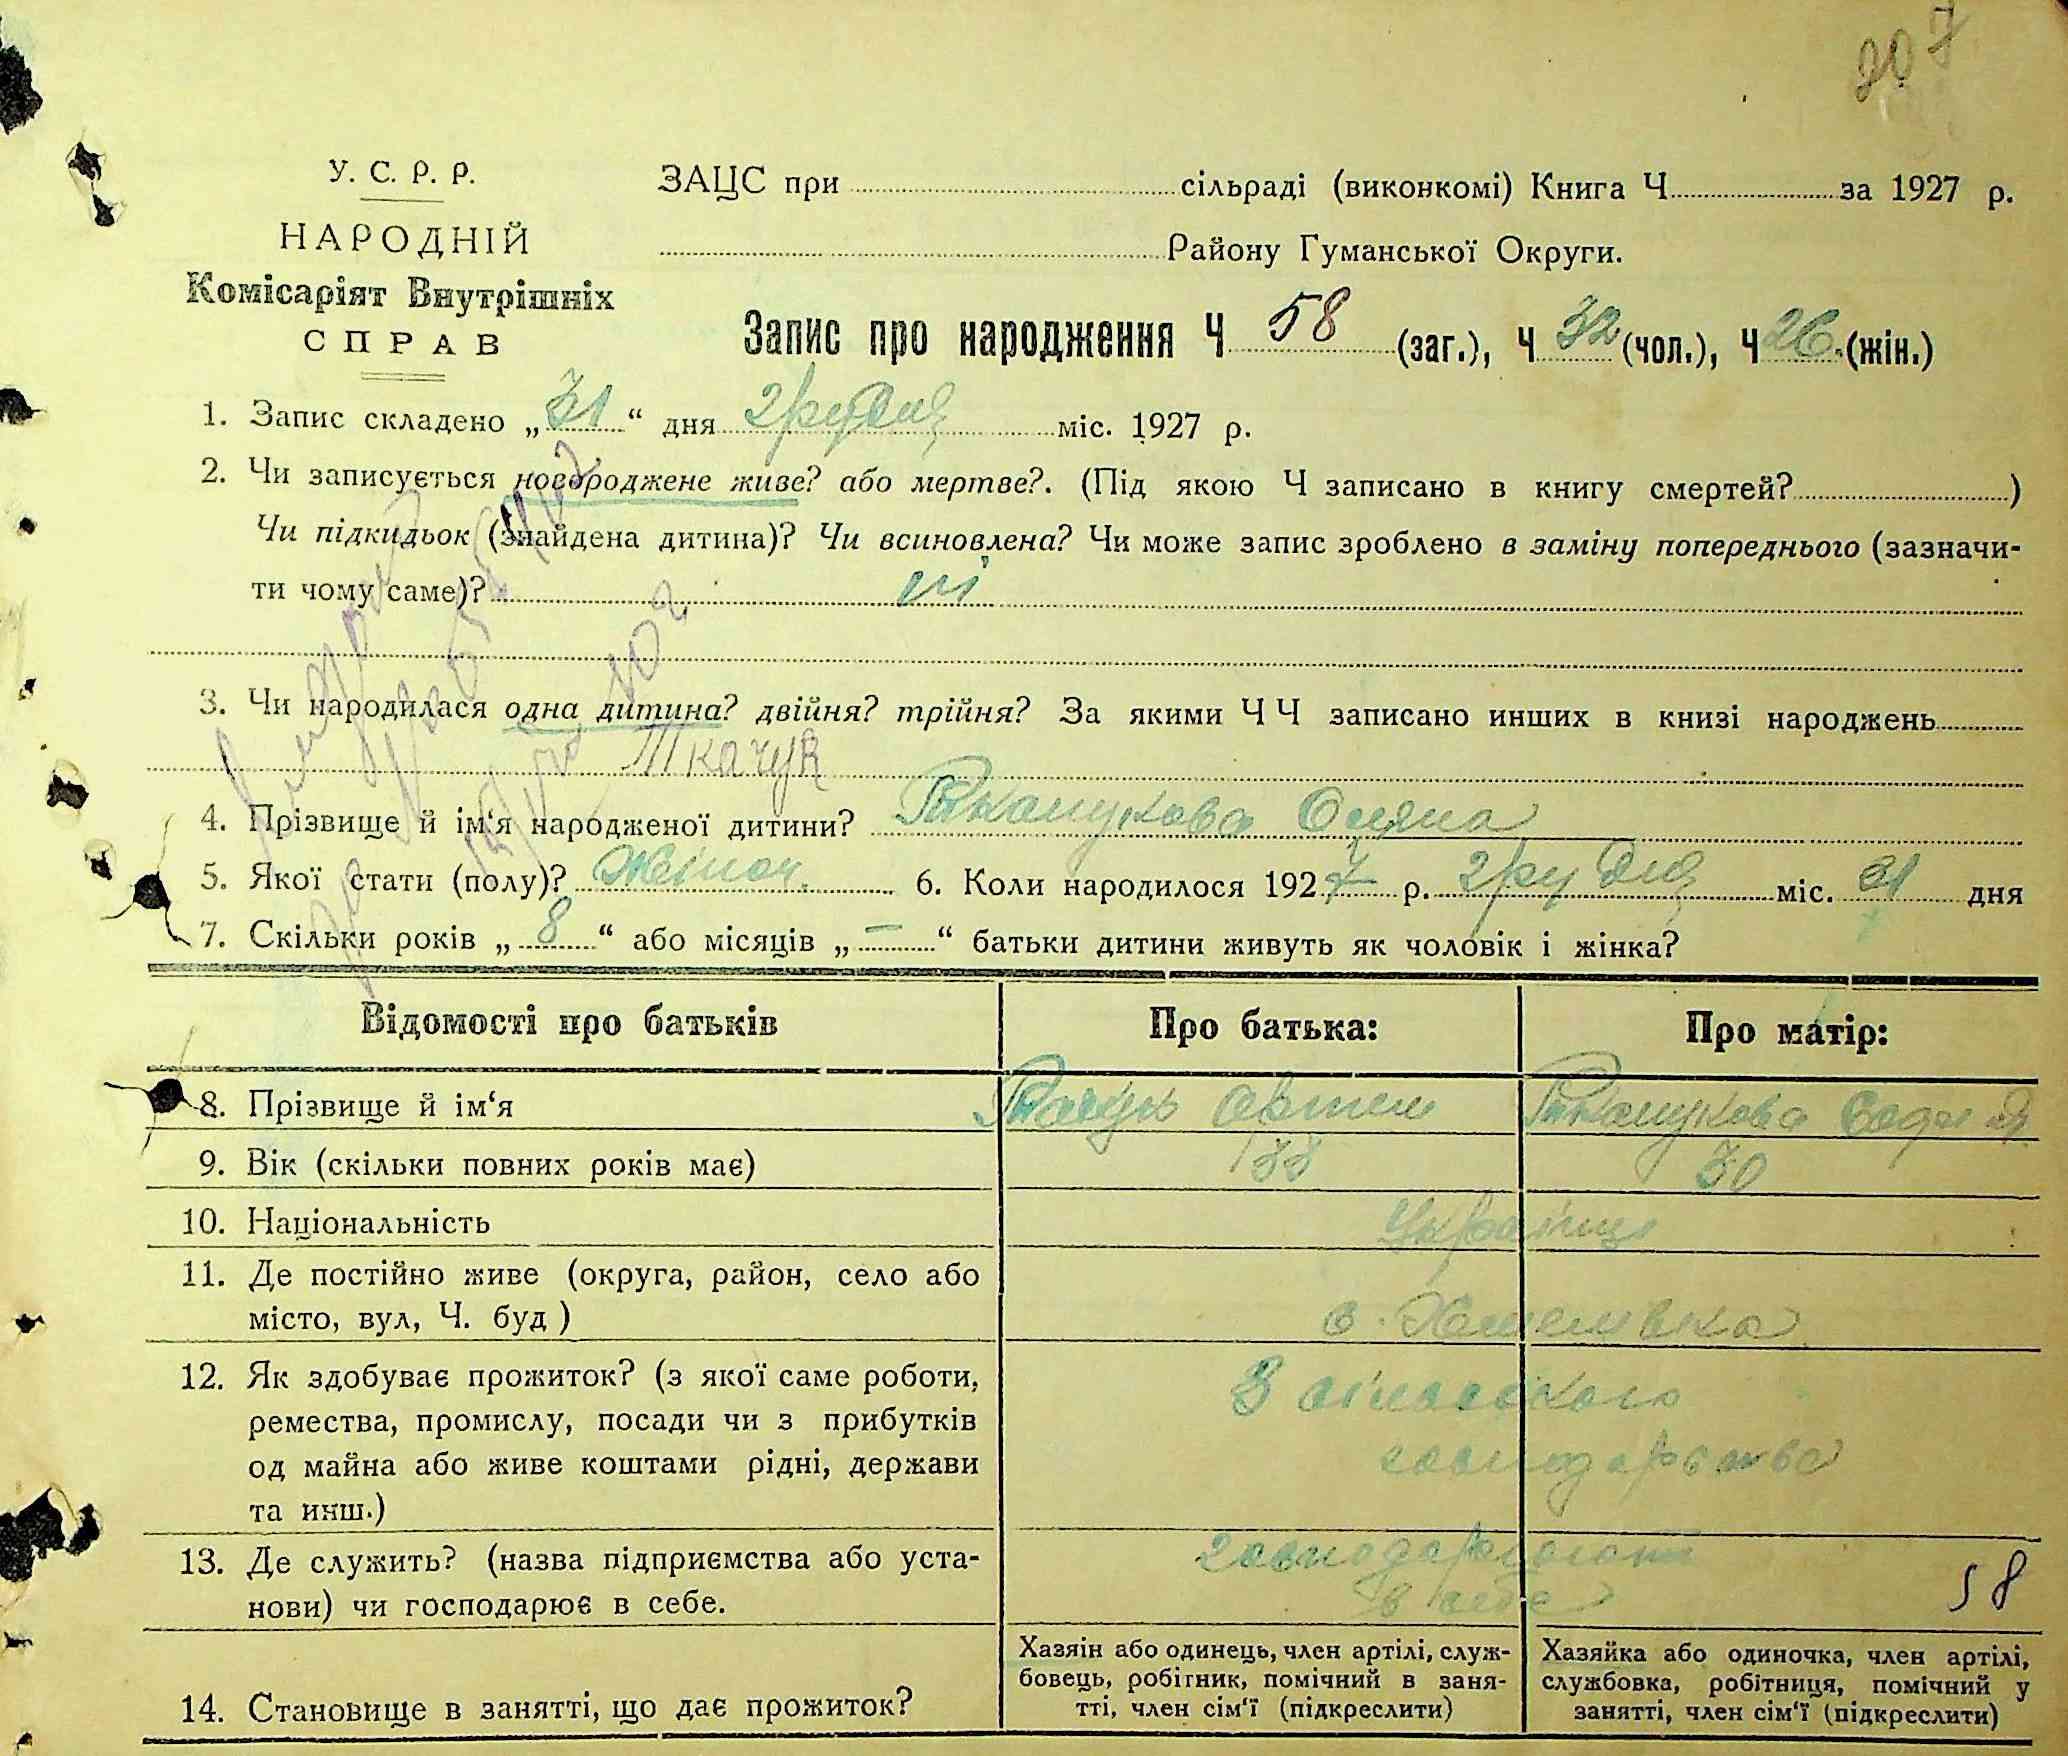 207
У. С. Р. Р.
НАРОДНІЙ
Комісаріят Внутрішніх
СПРАВ
ЗАЦС при сільраді (виконкомі) Книга Ч за 1927 р.
Району Гуманської Округи.
Запис про народження Ч 58 (заг.), Ч 32 (чол.), Ч 26 (жін.)
1. Запис складено „31“ дня грудня міс. 1927 р.
2. Чи записується новороджене живе? або мертве?. (Під якою Ч записано в книгу смертей? )
Чи підкидьок (знайдена дитина)? Чи всиновлена? Чи може запис зроблено в заміну попереднього (зазначи-
ти чому саме)? ні
3. Чи народилася одна дитина? двійня? трійня? За якими ЧЧ записано инших в книзі народжень
Ткачук
4. Прізвище й ім‘я народженої дитини? Ткачукова
5. Якої стати (полу)? Жіноч. 6. Коли народилося 1927 р. грудня міс. 31 дня
7. Скільки років „8“ або місяців „—“ батьки дитини живуть як чоловік і жінка?
Відомості про батьків
Про батька:
Про матір:
8. Прізвище й ім‘я
Ткачук
Ткачукова
9. Вік (скільки повних років має)
33
30
10. Національність
Українці
11. Де постійно живе (округа, район, село або
місто, вул, Ч. буд )
с.
12. Як здобуває прожиток? (з якої саме роботи,
ремества, промислу, посади чи з прибутків
од майна або живе коштами рідні, держави
та инш.)
З сільського
господарства
13. Де служить? (назва підприємства або уста-
нови) чи господарює в себе.
господарюють
в себе
58
14. Становище в занятті, що дає прожиток?
Хазяін або одинець, член артілі, служ-
бовець, робігник, помічний в заня-
тті, член сім‘ї (підкреслити)
Хазяйка або одиночка, член артілі,
службовка, робітниця, помічний у
занятті, член сім‘ї (підкреслити)